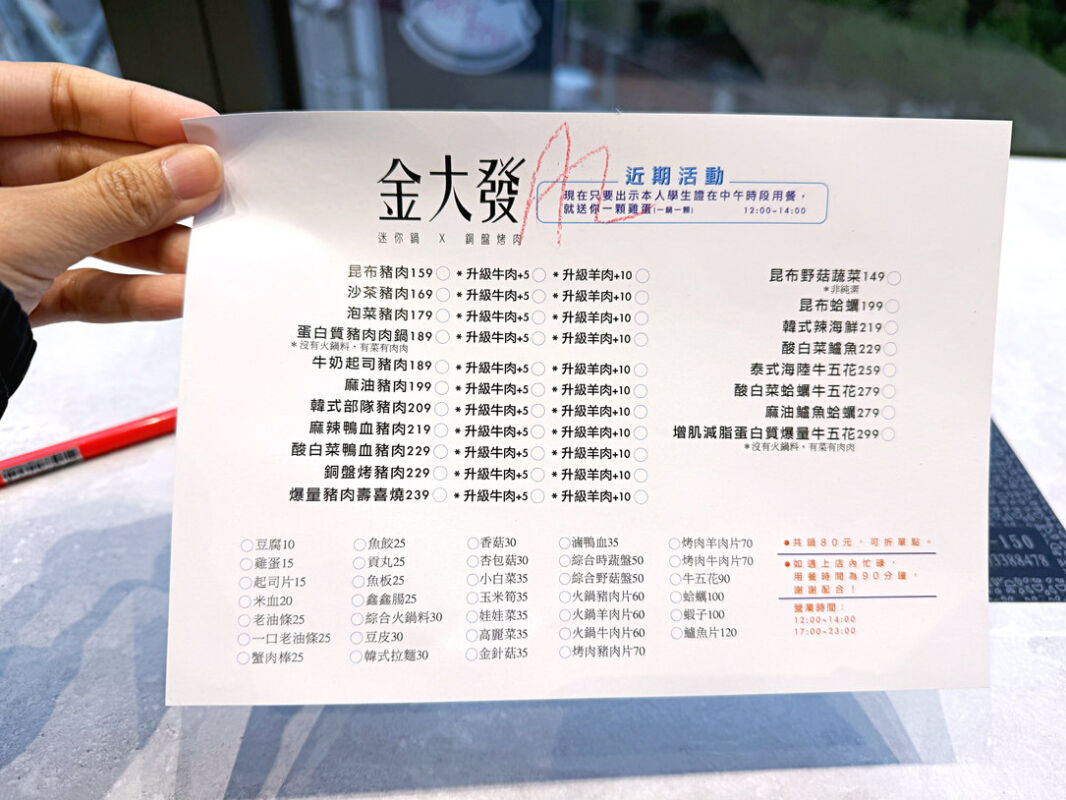 金大發
迷你鍋 X 銅盤烤肉
A2
近期活動
現在只要出示本人學生證在中午時段用餐，
就送你一顆雞蛋(一鍋一顆) 12:00~14:00
昆布豬肉159 *升級牛肉+5 *升級羊肉+10
沙茶豬肉169 *升級牛肉+5 *升級羊肉+10
泡菜豬肉179 *升級牛肉+5 *升級羊肉+10
蛋白質豬肉肉鍋189 *升級牛肉+5 *升級羊肉+10
*沒有火鍋料，有菜有肉肉
牛奶起司豬肉189 *升級牛肉+5 *升級羊肉+10
麻油豬肉199 *升級牛肉+5 *升級羊肉+10
韓式部隊豬肉209 *升級牛肉+5 *升級羊肉+10
麻辣鴨血豬肉219 *升級牛肉+5 *升級羊肉+10
酸白菜鴨血豬肉229 *升級牛肉+5 *升級羊肉+10
銅盤烤豬肉229 *升級牛肉+5 *升級羊肉+10
爆量豬肉壽喜燒239 *升級牛肉+5 *升級羊肉+10
昆布野菇蔬菜149
*非純素
昆布蛤蠣199
韓式辣海鮮219
酸白菜鱸魚229
泰式海陸牛五花259
酸白菜蛤蠣牛五花279
麻油鱸魚蛤蠣279
增肌減脂蛋白質爆量牛五花299
*沒有火鍋料，有菜有肉肉
豆腐10
雞蛋15
起司片15
米血20
老油條25
一口老油條25
蟹肉棒25
魚餃25
貢丸25
魚板25
鑫鑫腸25
綜合火鍋料30
豆皮30
韓式拉麵30
香菇30
杏包菇30
小白菜35
玉米筍35
娃娃菜35
高麗菜35
金針菇35
滷鴨血35
綜合時蔬盤50
綜合野菇盤50
火鍋豬肉片60
火鍋羊肉片60
火鍋牛肉片60
烤肉豬肉片70
烤肉羊肉片70
烤肉牛肉片70
牛五花90
蛤蠣100
蝦子100
鱸魚片120
●共鍋80元，可折單點。
●如遇上店內忙碌，
用餐時間為90分鐘，
謝謝配合！
營業時間：
12:00~14:00
17:00~23:00
-150
3368478